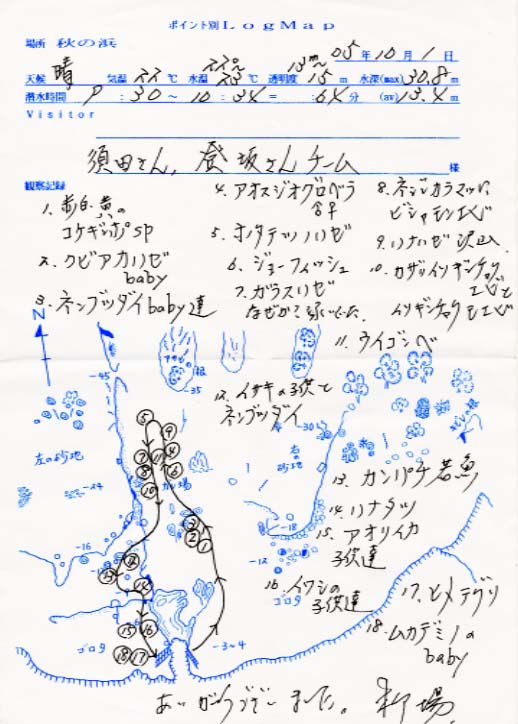 ポイント別LogMap
場所 秋の浜 05年10月1日
天候 晴 気温 22℃ 水温 23℃ 透明度 15m 水深(max)30.8m
潜水時間 9:30~10:34=:64分 (av)13.4m
Visitor
須田さん、登坂さんチーム 様
観察記録
1. 赤白・黄の
コケギンポSP
2. クビアカハゼ
baby
3. ネンブツダイbaby達
4. アオスジオグロベラ
5. ホタテツノハゼ
6. ジョーフィッシュ
7. ガラスハゼ
なぜか
ビシャモンエビ
9. ハナハゼ 沢山
イソギンチャクモエビ
11. ウイゴンベ
12. イサキの子供と
ネンブツダイ
13. カンパチ若魚
14. ハナタツ
15. アオリイカ
子供達
16. イワシの
子供達
17. ヒメテグリ
18. ムカデミノの
baby
N
-45
-35
-30
左の砂地
右の砂地
-24
-16
-18
-12
ゴロタ
ゴロタ
-3~4
ありがとうございました。